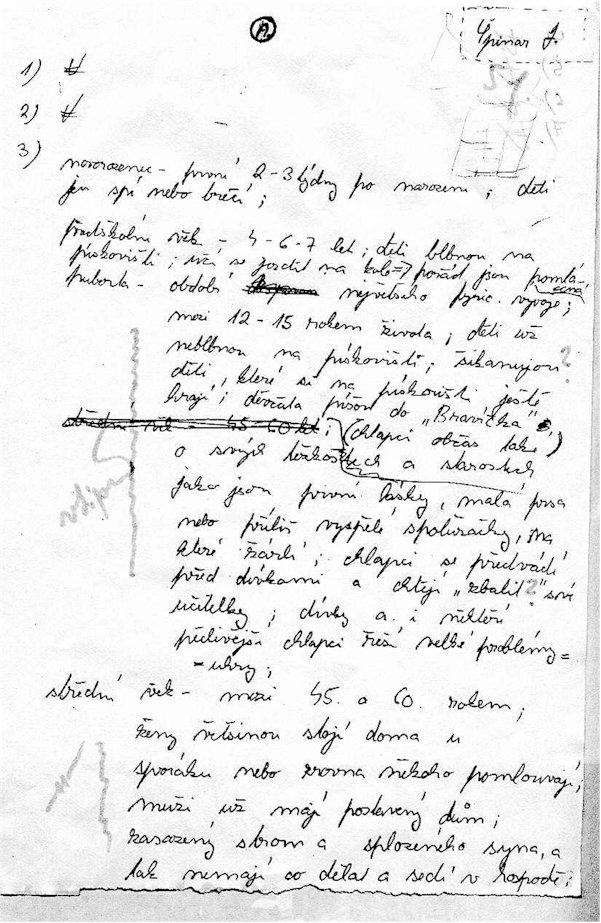 A.
Špinar J.
1)
2)
3)
novorozenec - první 2-3 týdny po narození; děti
jen spí nebo brečí;
předškolní věk - 4-6-7 let; děti blbnou na
pískovišti; učí se jezdit na kole => pořád jsou pomlá-
cená
puberta - období největšího fyzic. vývoje;
mezi 12-15 rokem života; děti už
neblbnou na pískovišti; šikanujou ?
děti, které si na pískovišti ještě
hrají; děvčata píšou do "Bravíčka"
střední věk - 45-60 let; (chlapci občas také)
o svých těžkostech a starostech
jako jsou první lásky, malá prsa
nebo příliš vyspělé spolužačky, na
které žárlí; chlapci se předvádí
před dívkami a chtějí "zbalit" ? své
učitelky; dívky a i někteří
pečlivější chlapci řeší velké problémy =
= uhry;
střední věk - mezi 45. a 60. rokem;
ženy většinou stojí doma u
sporáku nebo zrovna někoho pomlouvají;
muži už mají postavený dům;
zasazený strom a splozeného syna, a
tak nemají co dělat a sedí v hospodě;
vtipné